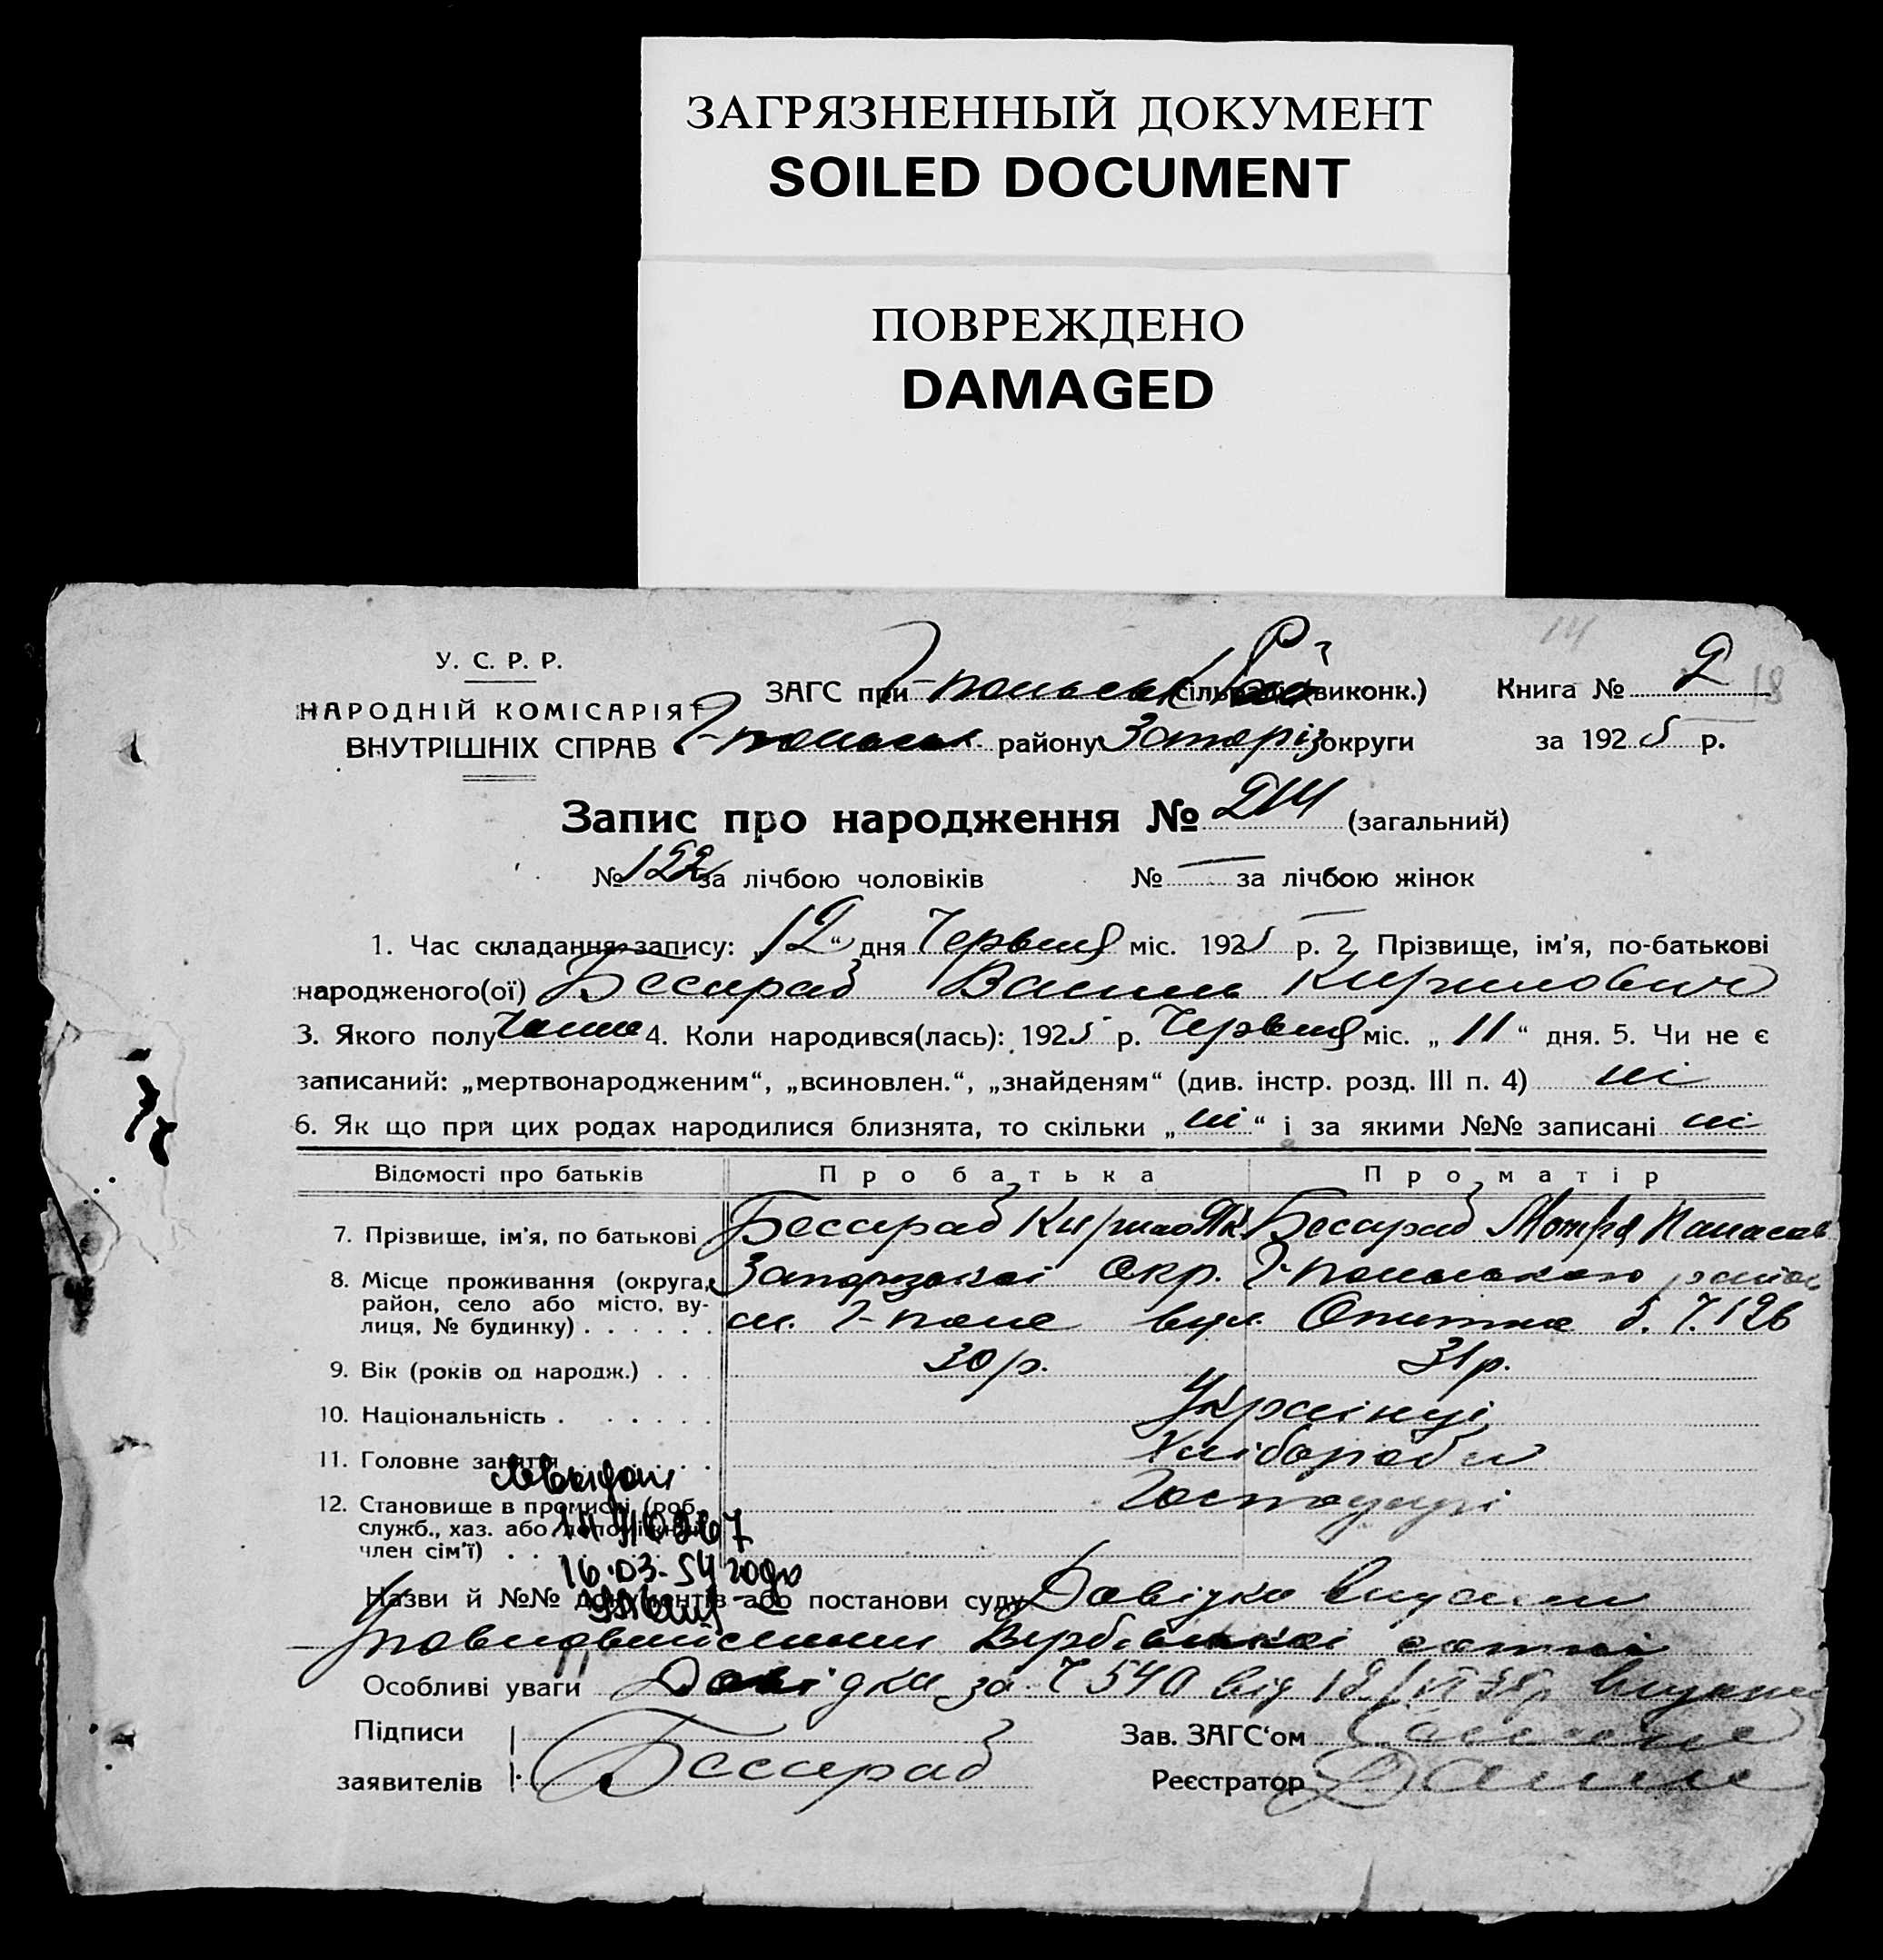 ЗАГРЯЗНЕННЫЙ ДОКУМЕНТ
SOILED DOCUMENT
ПОВРЕЖДЕНО
DAMAGED
У. С. Р. Р.
НАРОДНІЙ КОМІСАРІЯТ
ВНУТРІШНІХ СПРАВ
ЗАГС при Г-польськ виконк.) Книга № 2 18
Г-польськ. району Запоріз округи за 1925 р.
Запис про народження № 214 (загальний)
№ 122 за лічбою чоловіків № — за лічбою жінок
1. Час складання запису: „12“ дня Червня міс. 1925 р. 2. Прізвище, ім’я, по-батькові
народженого(ої) Бессараб Василь Кирилович
3. Якого полу Чолов 4. Коли народився(лась): 1925 р. Червня міс. „11“ дня. 5. Чи не є
записаний: „мертвонародженим“, „всиновлен.“, „знайденям“ (див. інстр. розд. III п. 4) ні
6. Як що при цих родах народилися близнята, то скільки „ні“ і за якими №№ записані ні
Відомості про батьків Про батька Про матір
7. Прізвище, ім’я, по батькові Бессараб Кирило Як Бессараб Мотря Панасов
8. Місце проживання (округа, Запорізької Окр. Г-польського район
район, село або місто, ву-
лиця, № будинку) с. Г-поле вул. б. Ч. 126
9. Вік (років од народж.) 30 р. 31 р.
10. Національність Українці
11. Головне заняття Хлібороби
12. Становище в промислі (роб., Господарі
служб., хаз. або
член сім’ї)
16.03.54 года
Назви й №№ документів або постанови суду Довідка видана
Уповидвшісенним Вербівської сотні
Особливі уваги Довідка за Ч 540 від видана
Підписи
заявителів Бессараб
Зав. ЗАГС‘ом
Реєстратор